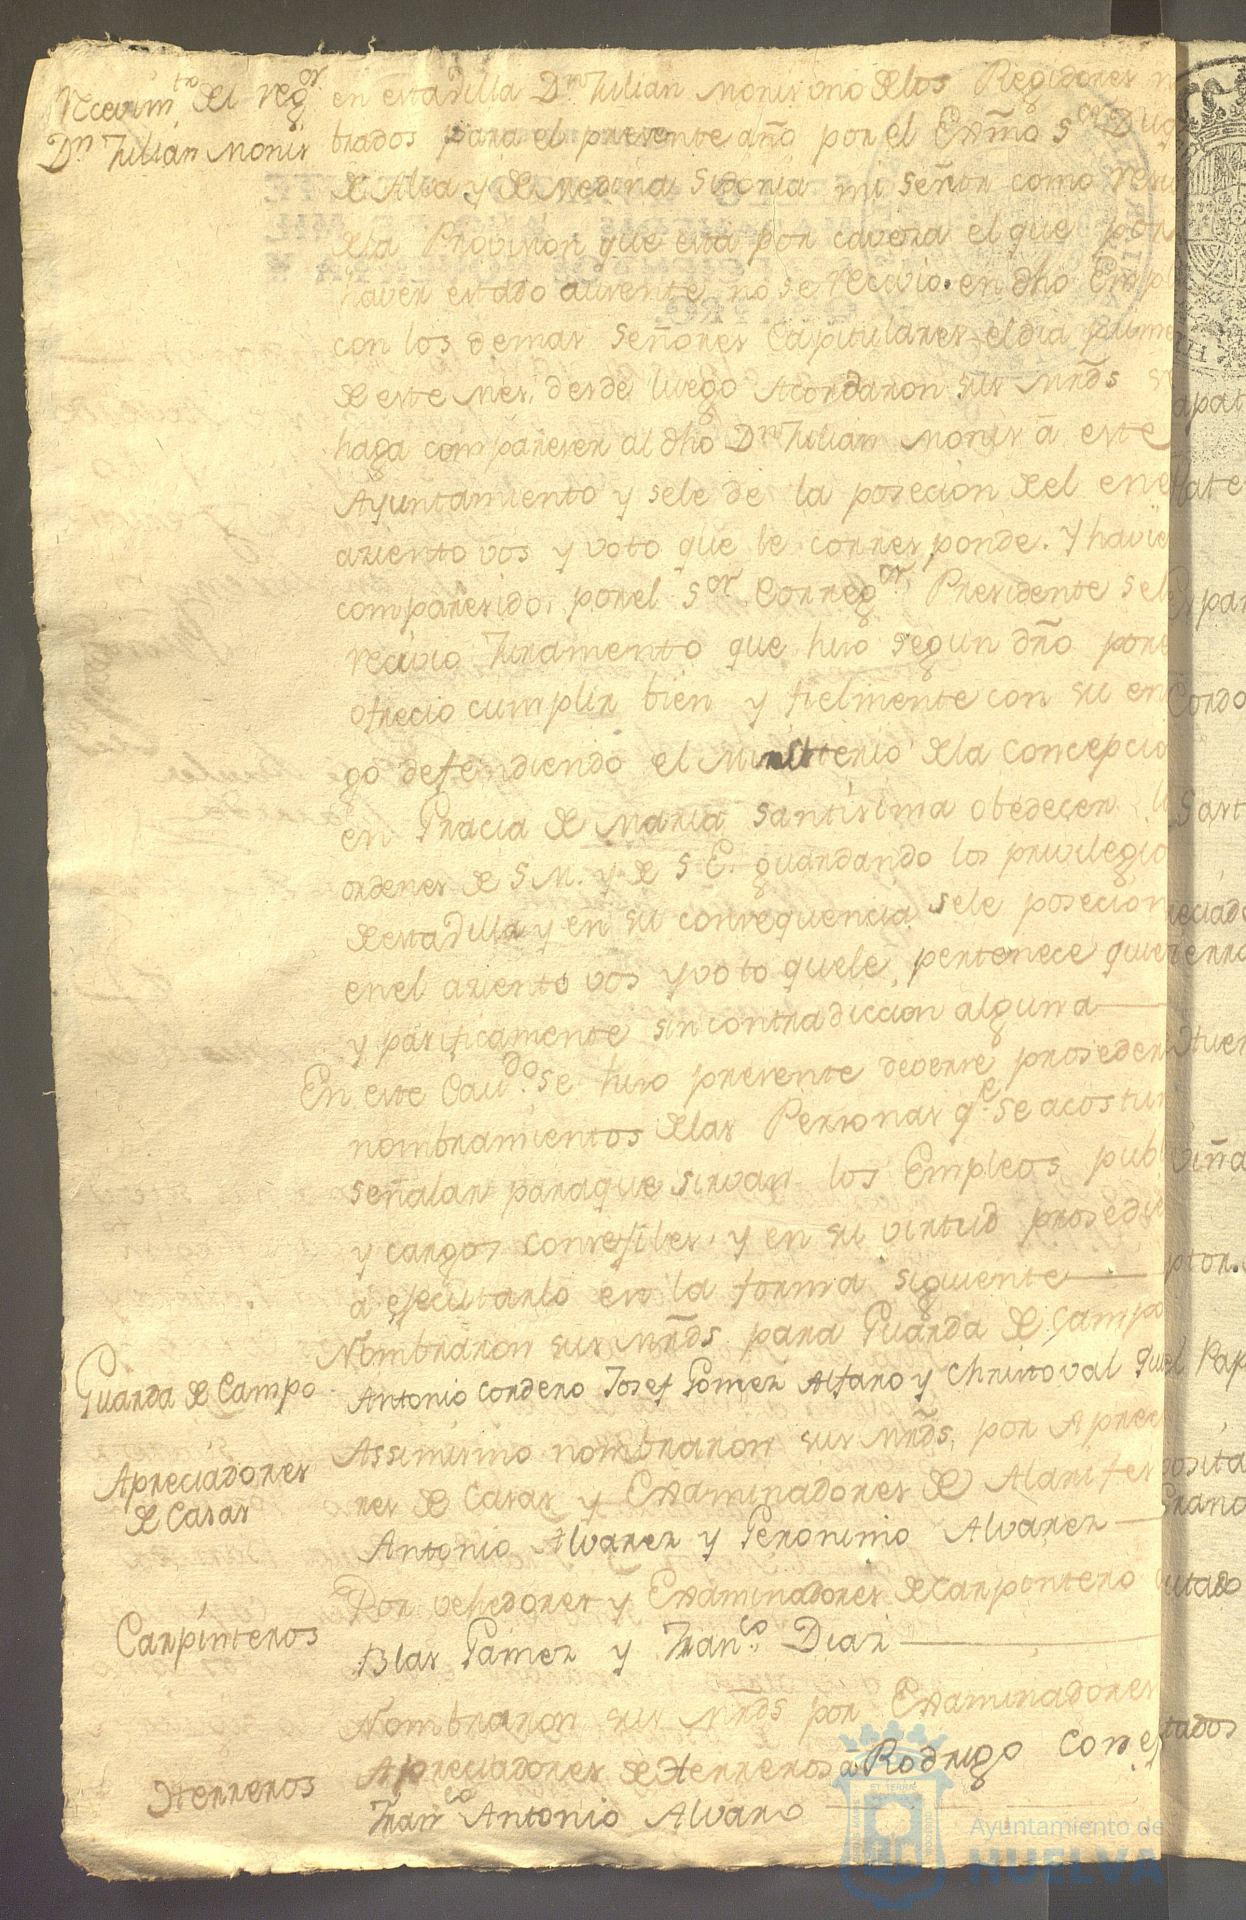 Recevim.to del reg.or
Dn Julian Monis
en esta Villa Dn Julian Monis uno de los Regidores
brados para el presente año por el Exmo Sor Duq
de Alva y de Medina Sidonia mi Señor como
de la Provision que esta por cavesa el que por
haver estado ausente no se recevio en dho Empl
con los demas Señores Capitulares el dia prime
de este mes, desde luego Acordaron sus Mrds
haga compareser al dho Dn Julian Monis a este
Ayuntamiento y sele de la posecion del en e
asiento vos y voto que le corresponde. Y havie
comparesido, por el Sor Correg.or Presidente sel
recivio Juramento que hiso segun dro por
ofrecio cumplir bien y fielmente con su en
go defendiendo el Misterio de la Concepcio
en Gracia de Maria Santisima obedecer
ordenes de S M. y de S E. guardando los privilegio
de esta Villa y en su consequencia sele posecion
en el asiento vos y voto quele pertenece quie
y pasificamente sin contradiccion alguna
En este Cavdo. se tuvo presente deverse proseder
nombramientos de las Personas q.e se acostu
señalar paraque sirvan los Empleos pub
y cargos consejiles, y en su virtud prosed
a ejecutarlo en la forma siguiente
Guarda de Campo
Nombraron sus Mrds para Guarda de Campo
Antonio Cordero Josef Gomez Alfaro y Christoval
Apreciadores
de Casas
Assimismo nombraron sus Mrds, por Aprec
res de Casas y Examinadores de Alarifes
Antonio Alvarez y Geronimo Alvarez
Carpinteros
Por vehedores y Examinadores de Carpintero
Blas Gamez y Fran.co Diaz
Herreros
Nombraron sus Mrds por Examinadores
Apreciadores de Herreros a Rodrigo
Fran.co Antonio Alvaro
Ayuntamiento de
HUELVA